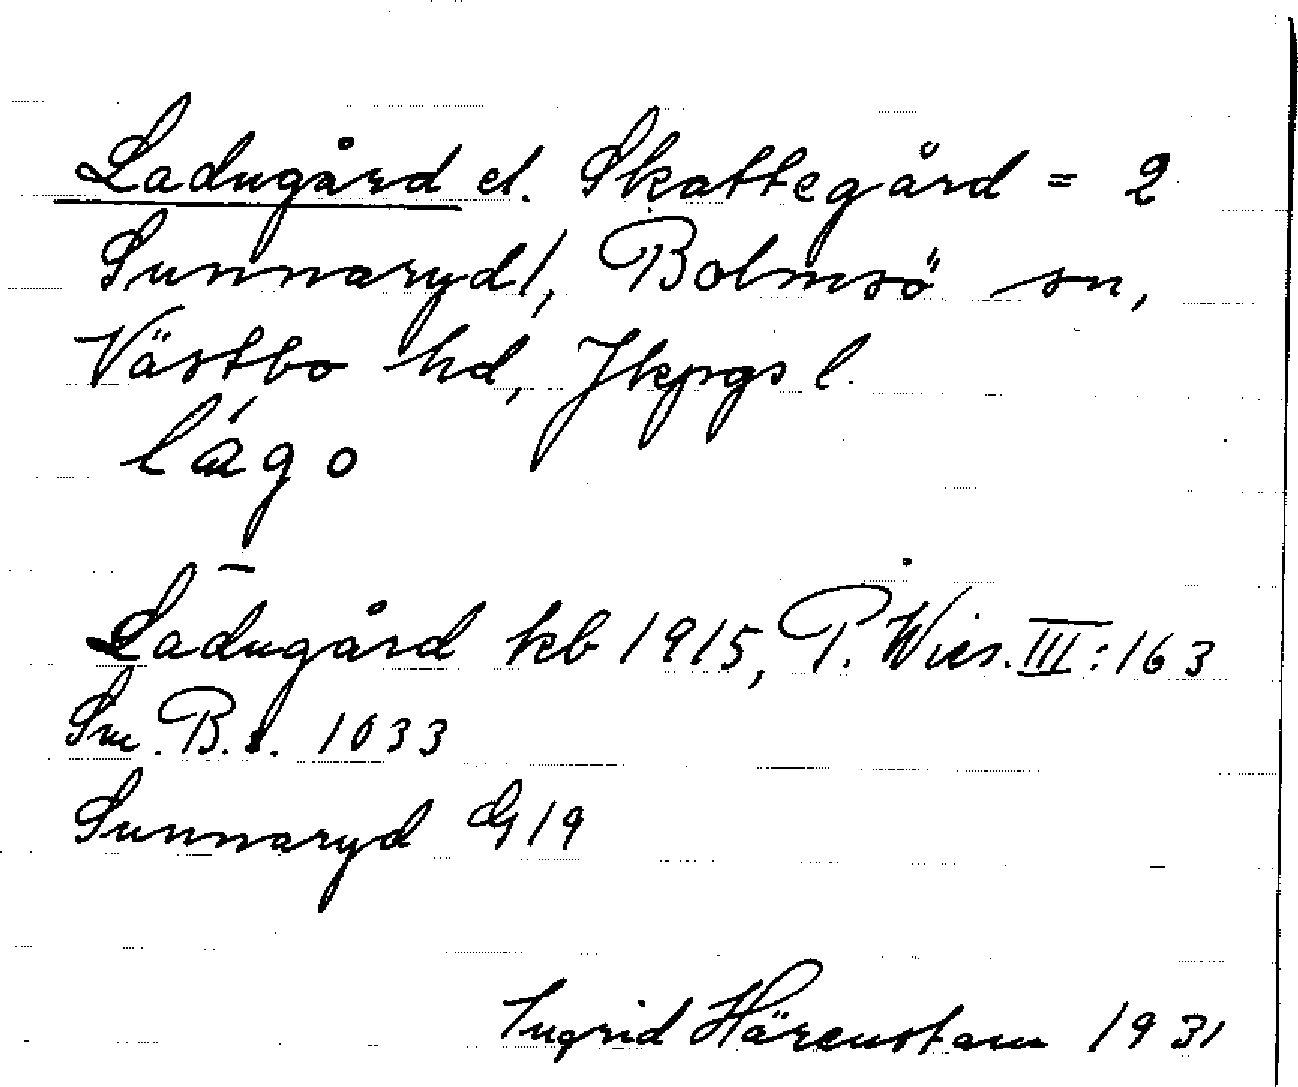 Ladugård el. Skattegård = 2
Sunnaryd 1, Bolmsö sn,
Västbo hd, Jkpgs l.
lágo
Ladugård kb 1915, P. Wies. III: 163
Sm. B. s. 1033
Sunnaryd G 19
Ingrid Härenstam 1931